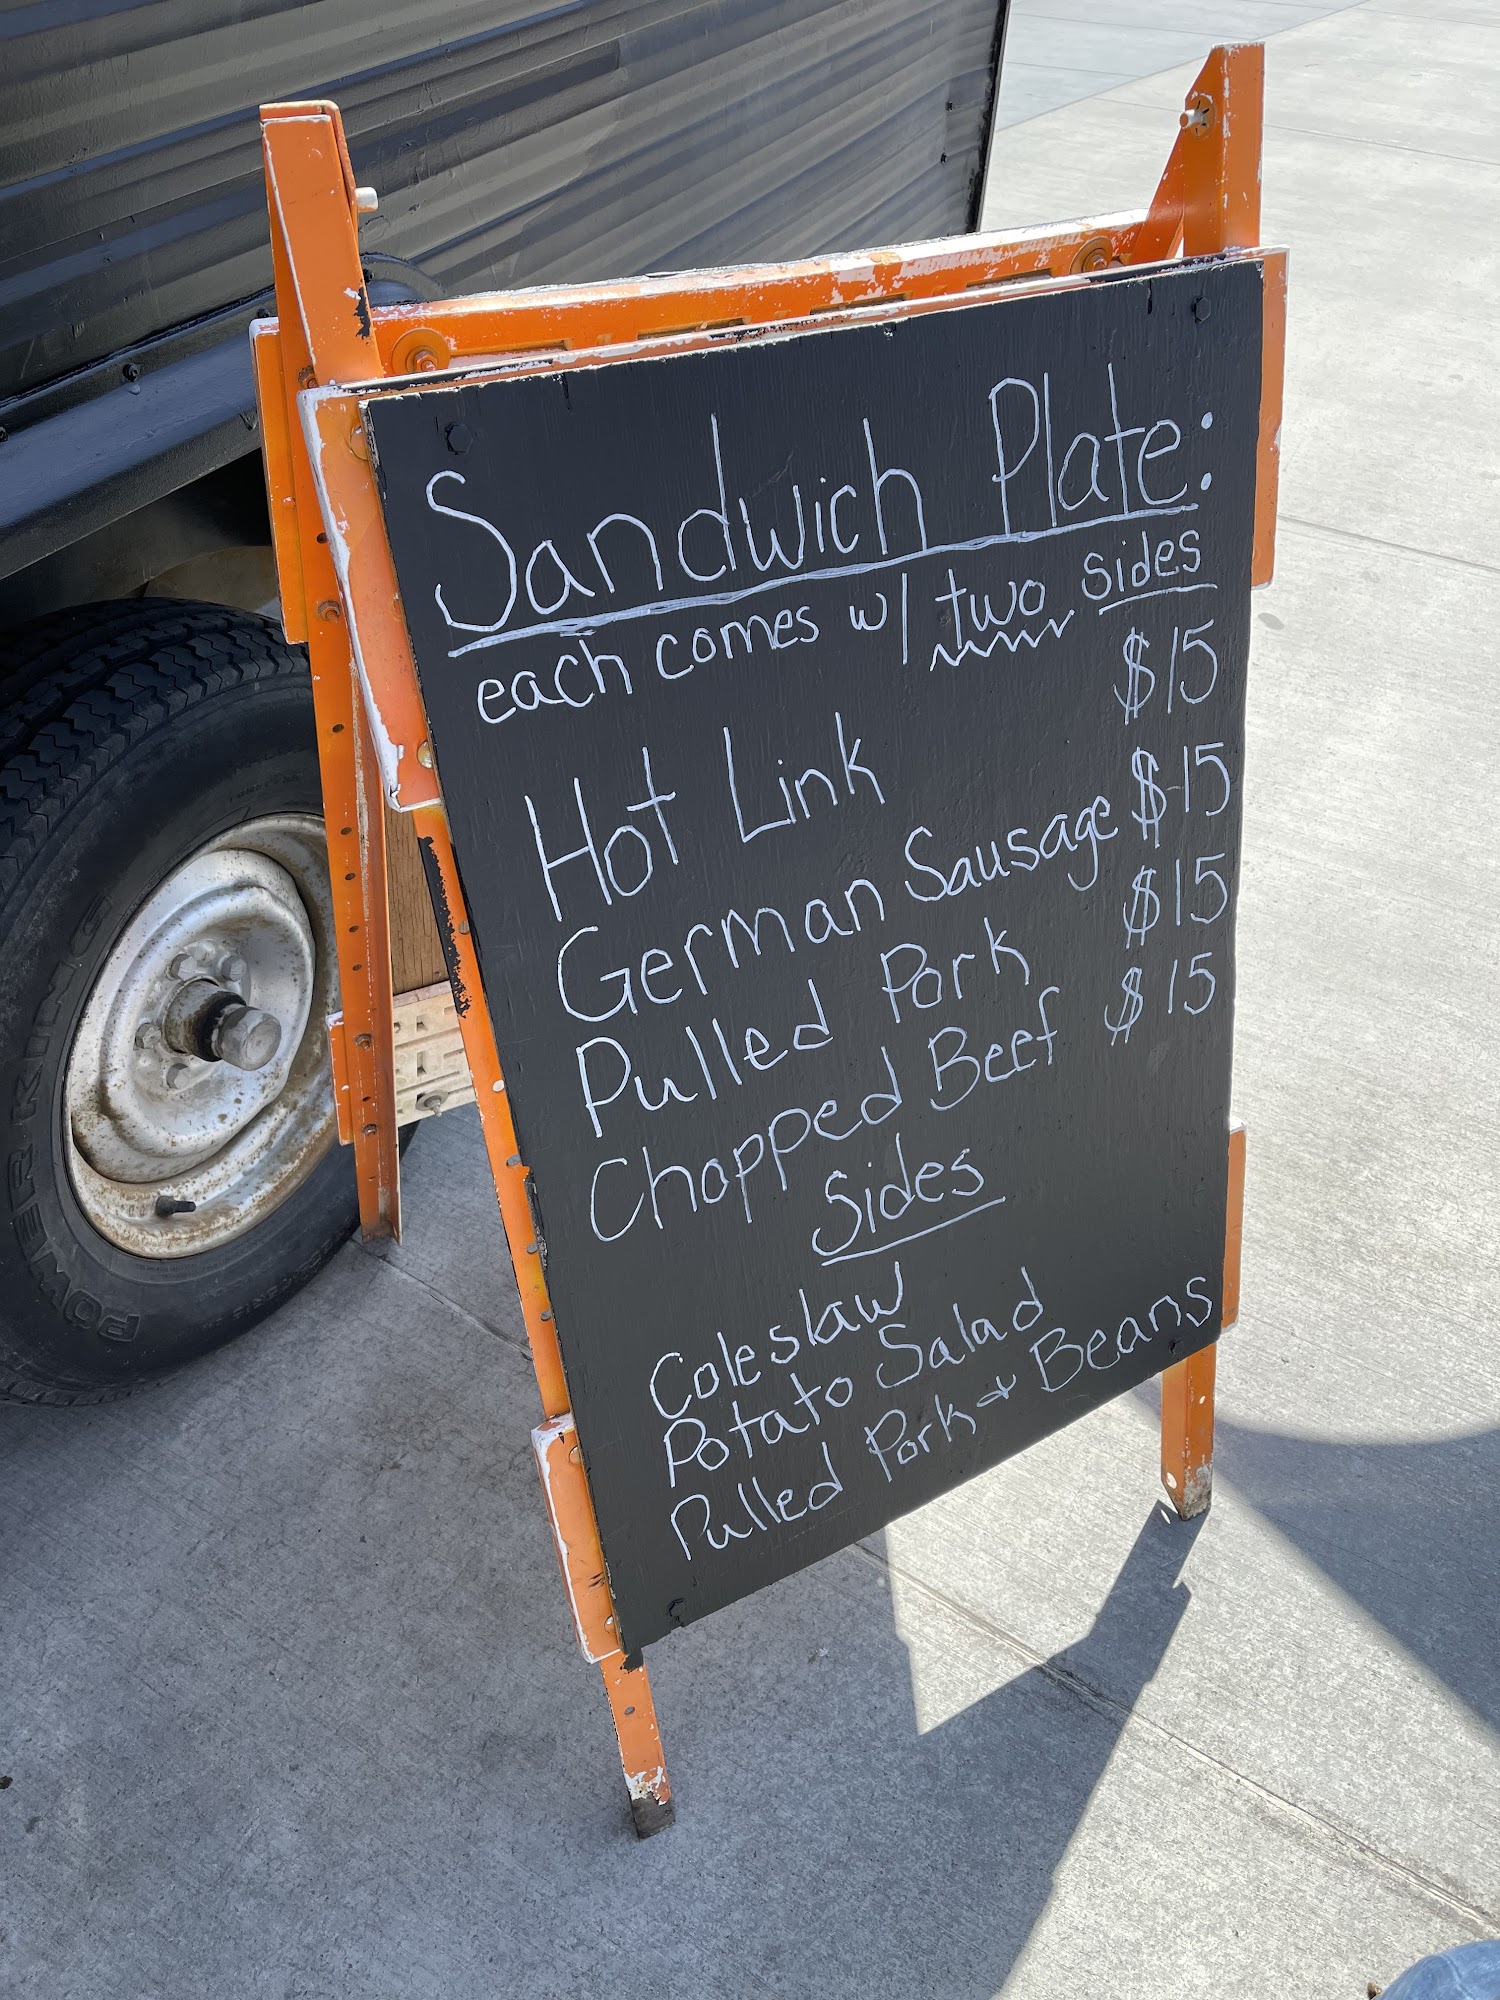 Sandwich Plate:
each comes w/ two sides
Hot Link $15
German Sausage $15
Pulled Pork $15
Chopped Beef $15
Sides
Coleslaw
Potato Salad
Pulled Pork & Beans
POWER KING